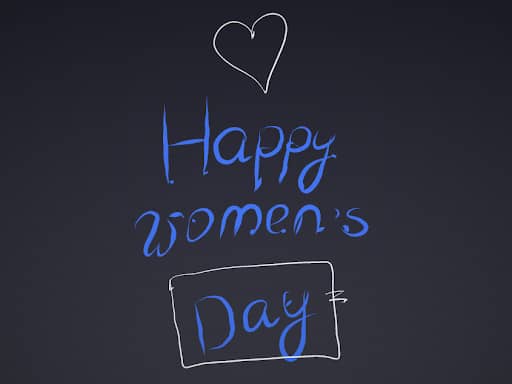 Happy
women's
Day